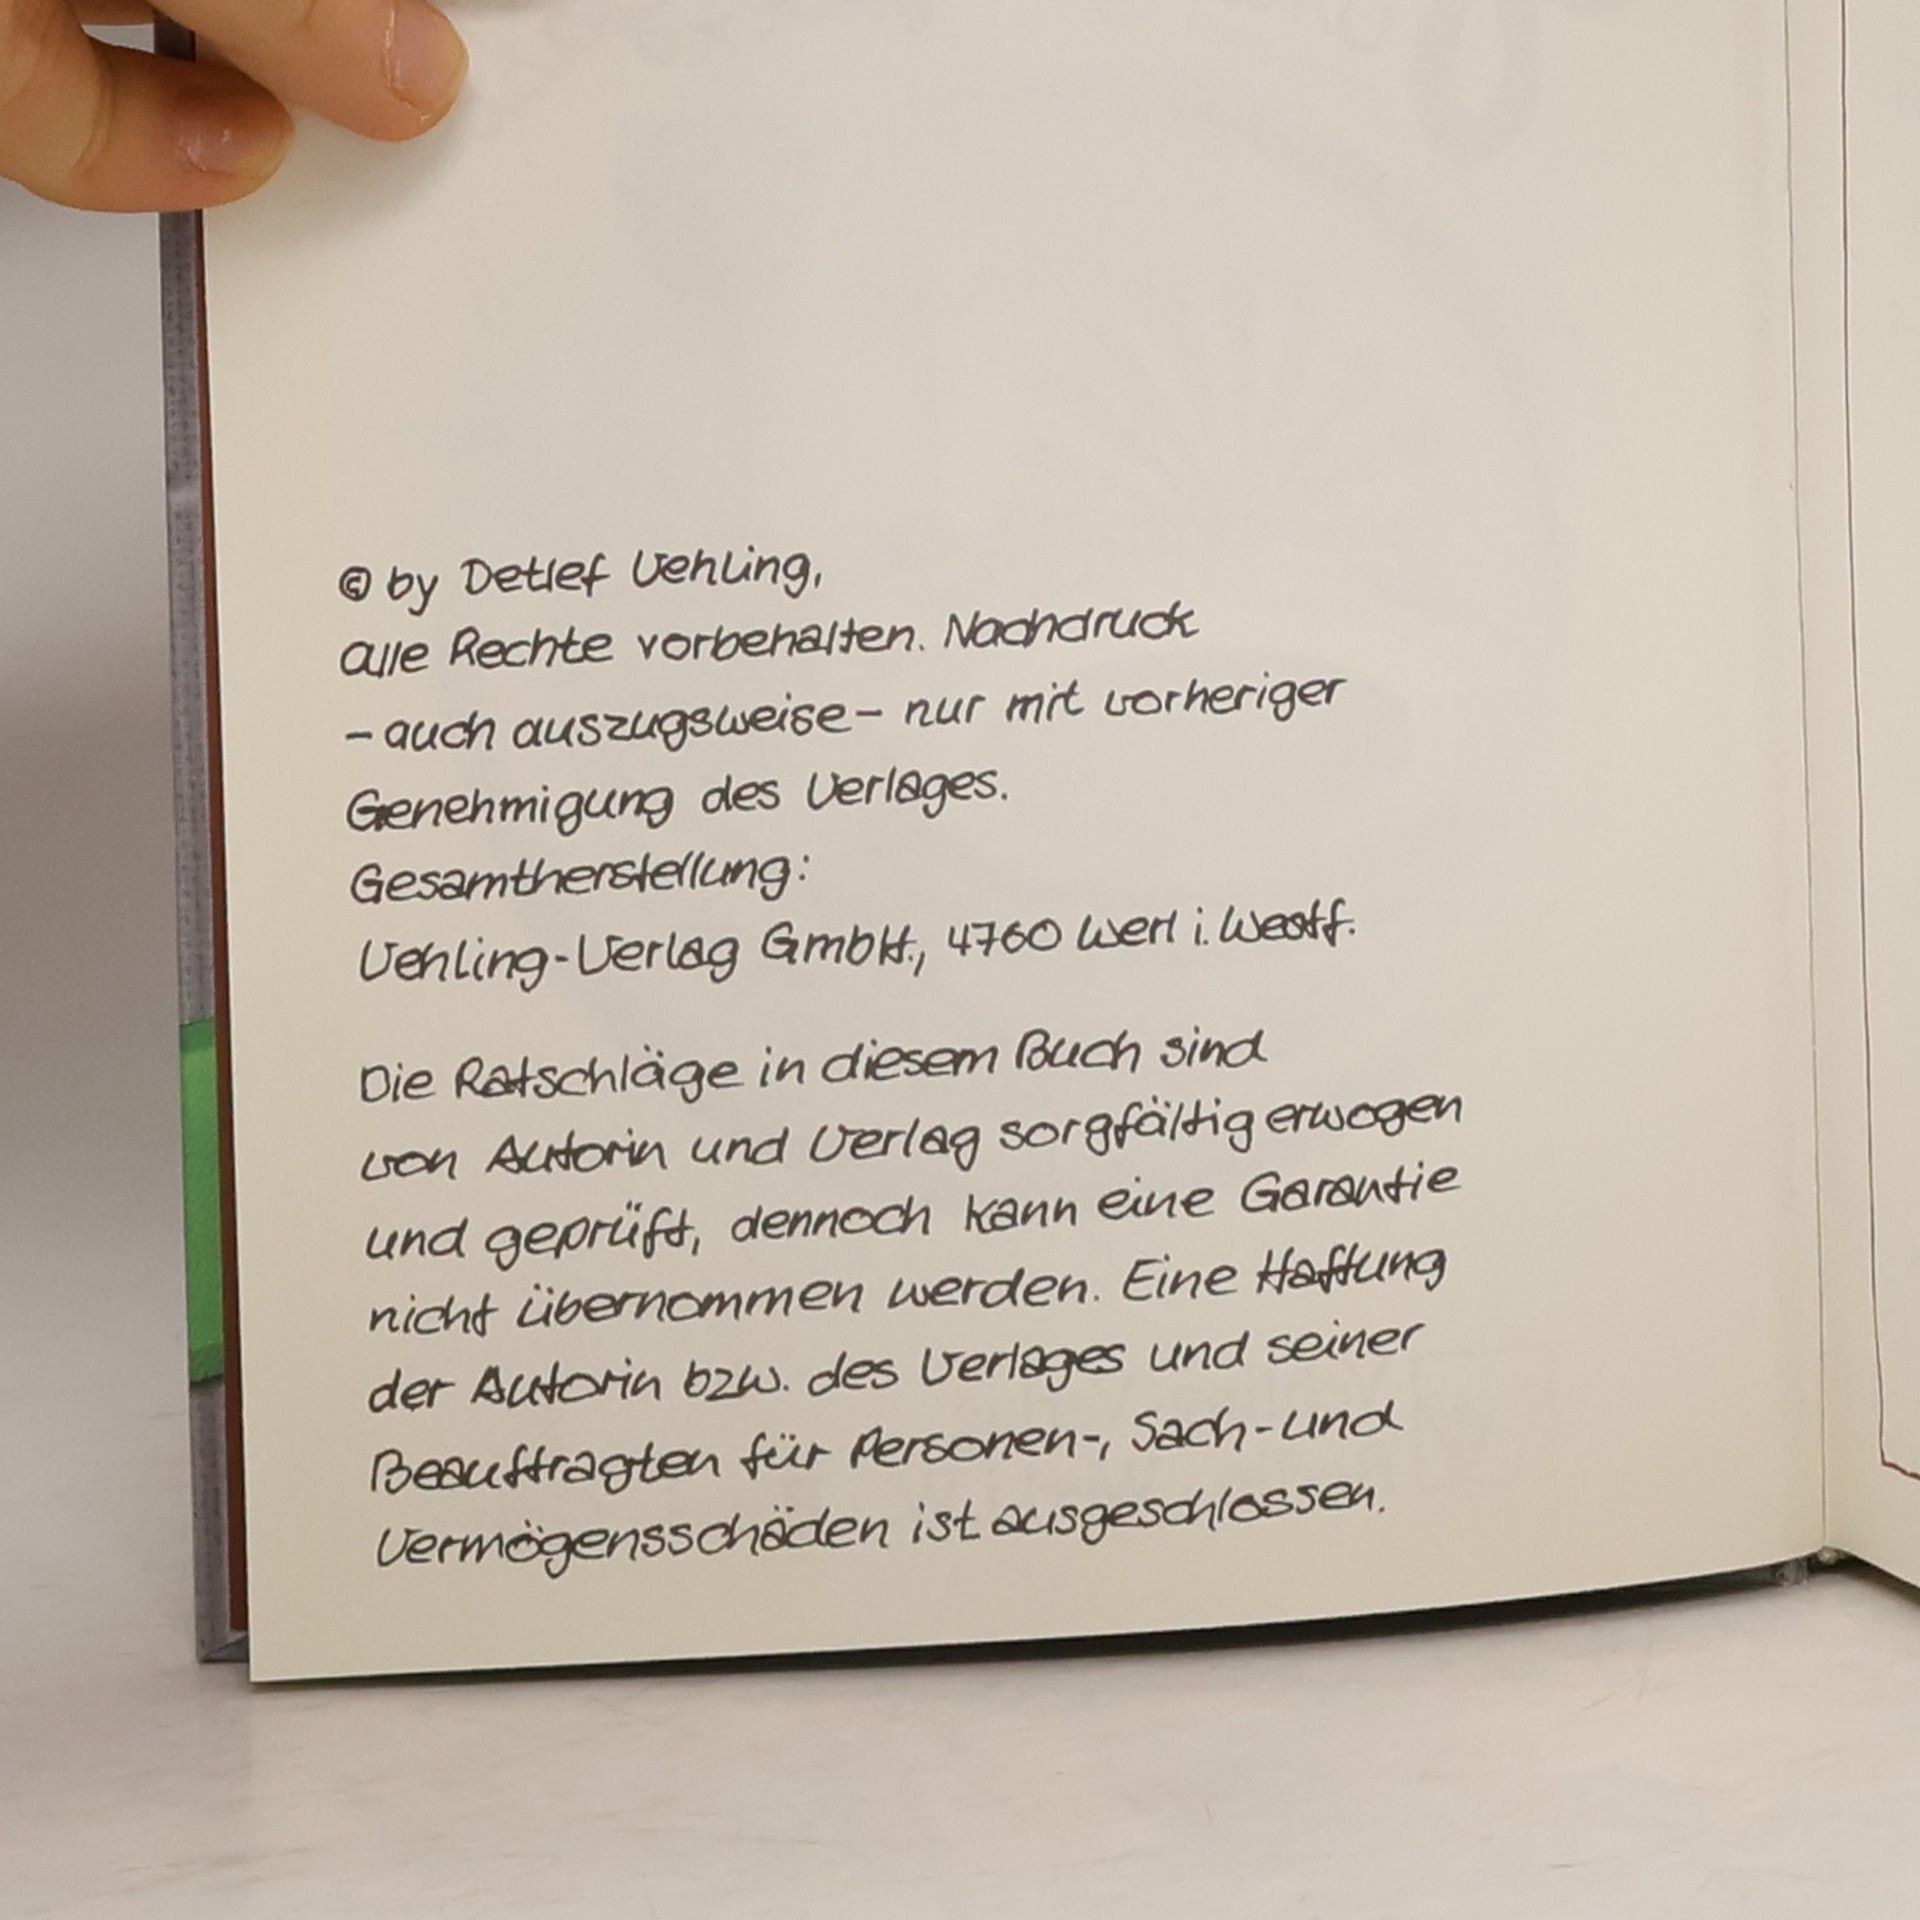 © by Detlef Uehling,
alle Rechte vorbehalten. Nachdruck
- auch auszugsweise - nur mit vorheriger
Genehmigung des Verlages.
Gesamtherstellung:
Uehling-Verlag GmbH., 4760 Werl i. Westf.
Die Ratschläge in diesem Buch sind
von Autorin und Verlag sorgfältig erwogen
und geprüft, dennoch kann eine Garantie
nicht übernommen werden. Eine Haftung
der Autorin bzw. des Verlages und seiner
Beauftragten für Personen-, Sach- und
Vermögensschäden ist ausgeschlossen.